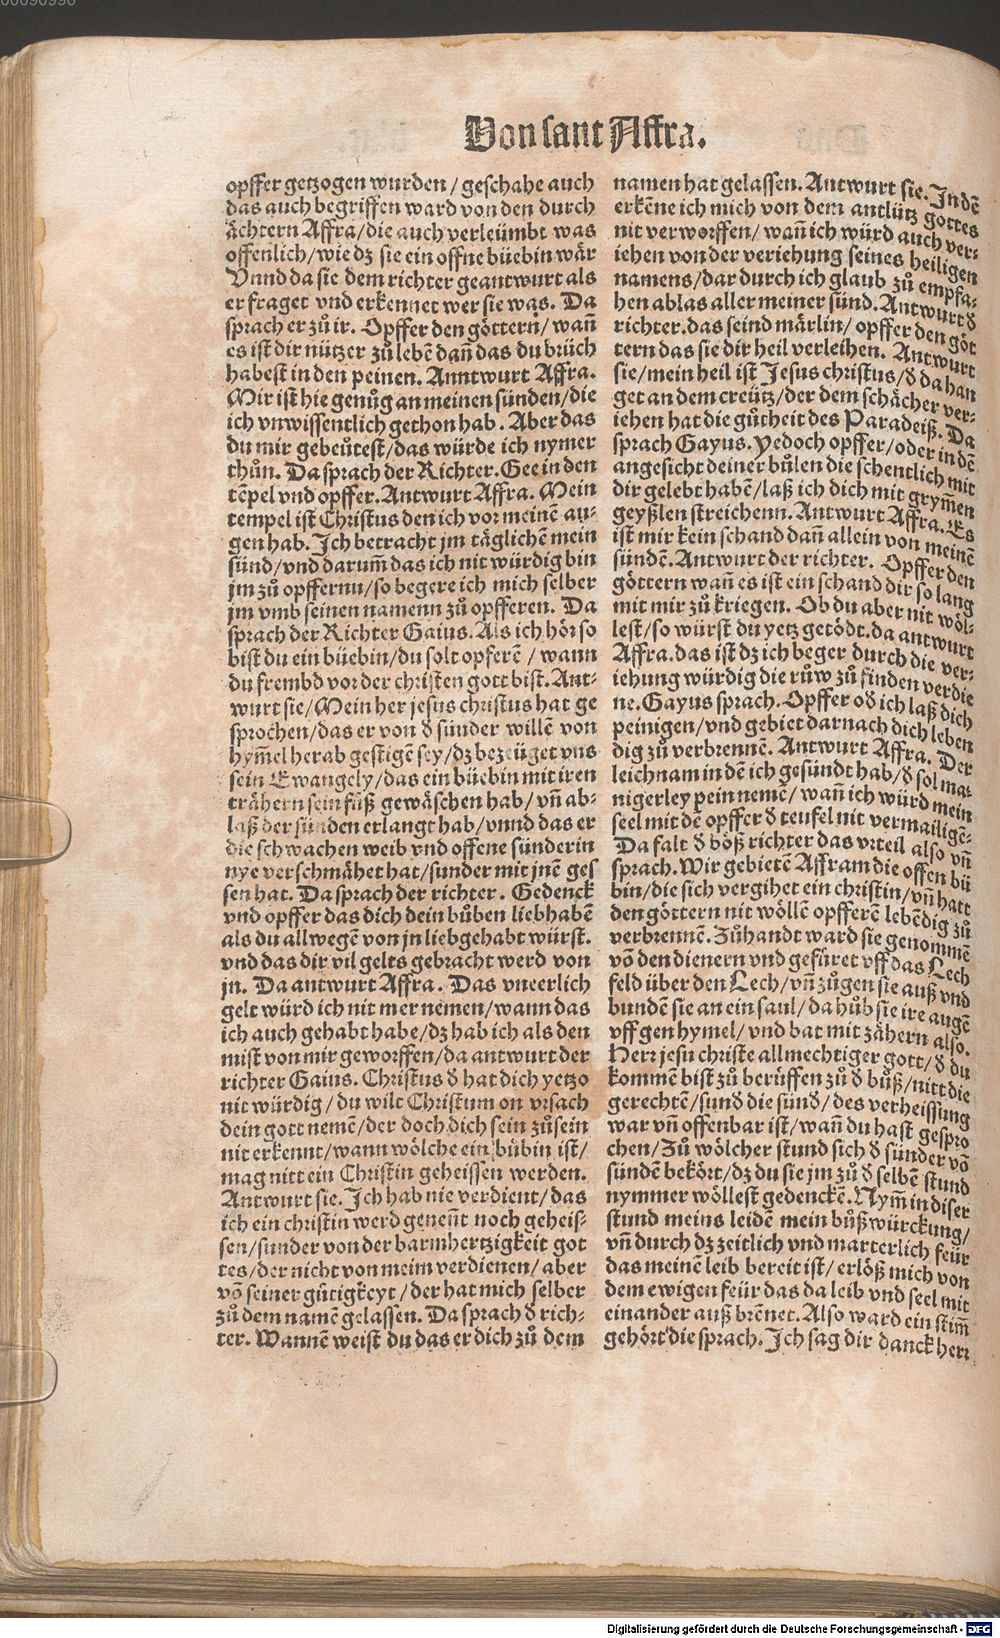 Von sant Affra.
opffer getzogen wurden / geschahe auch
das auch begriffen ward von den durch
ächtern Affra / die auch verleümbt was
offenlich / wie dz sie ein offne büebin wär
Vnnd da sie dem richter geantwurt als
er fraget vnd erkennet wer sie was. Da
sprach er zů ir. Opffer den göttern / wañ
es ist dir nützer zů lebē dañ das du brüch
habest in den peinen. Anntwurt Affra.
Mir ist hie genůg an meinen sünden / die
ich vnwissentlich gethon hab. Aber das
du mir gebeütest / das würde ich nymer
thůn. Da sprach der Richter. Gee in den
tēpel vnd opffer. Antwurt Affra. Mein
tempel ist Christus den ich vor meinē au⸗
gen hab. Ich betracht jm täglichē mein
sünd / vnd darum̄ das ich nit würdig bin
jm zů opffernu / so begere ich mich selber
jm vmb seinen namenn zů opfferen. Da
sprach der Richter Gaius. Als ich hör so
bist du ein büebin / du solt opferē / wann
du frembd vor der christen gott bist. Ant⸗
wurt sie / Mein her jesus christus hat ge
sprochen / das er von ð sünder willē von
hym̄el herab gestigē sey / dz bezeüget vns
sein Ewangely / das ein büebin mit iren
trähern sein füß gewäschen hab / vñ ab⸗
laß der sünden erlangt hab / vnnd das er
die schwachen weib vnd offene sünderin
nye verschmähet hat / sunder mit jnē ges
sen hat. Da sprach der richter. Gedenck
vnd opffer das dich dein bůben liebhabē
als du allwegē von jn liebgehabt würst.
vnd das dir vil gelts gebracht werd von
jn. Da antwurt Affra. Das vneerlich
gelt würd ich nit mer nemen / wann das
ich auch gehabt habe / dz hab ich als den
mist von mir geworffen / da antwurt der
richter Gaius. Christus ð hat dich yetzo
nit würdig / du wilt Christum on vrsach
dein gott nemē / der doch dich sein zůsein
nit erkennt / wann wölche ein bübin ist /
mag nitt ein Christin geheissen werden.
Antwurt sie. Ich hab nie verdient / das
ich ein christin werd geneñt noch geheis⸗
sen / sunder von der barmhertzigkeit got
tes / der nicht von meim verdienen / aber
vō seiner gütigkeyt / der hat mich selber
zů dem namē gelassen. Da sprach ð rich⸗
ter. Wannē weist du das er dich zů dem
namen hat gelassen. Antwurt sie. In dē
erkēne ich mich von dem antlütz gottes
nit verworffen / wañ ich würd auch ver⸗
iehen von der veriehung seines heiligen
namens / dar durch ich glaub zů empfa⸗
hen ablas aller meiner sünd. Antwurt ð
richter. das seind märlin / opffer den göt
tern das sie dir heil verleihen. Antwurt
sie / mein heil ist Jesus christus / ð da han
get an dem creütz / der dem schächer ver⸗
iehen hat die gůtheit des Paradeiß. Da
sprach Gayus. Yedoch opffer / oder in dē
angesicht deiner bůlen die schentlich mit
dir gelebt habē / laß ich dich mit grym̄en
geyßlen streichenn. Antwurt Affra. Es
ist mir kein schand dañ allein von meinē
sündē. Antwurt der richter. Opffer den
göttern wañ es ist ein schand dir so lang
mit mir zů kriegen. Ob du aber nit wöl⸗
lest / so würst du yetz getödt. da antwurt
Affra. das ist dz ich beger durch die ver⸗
iehung würdig die růw zů finden verdie
ne. Gayus sprach. Opffer oð ich laß dich
peinigen / vnd gebiet darnach dich leben
dig zů verbrennē. Antwurt Affra. Der
leichnam in dē ich gesündt hab / ð sol ma⸗
nigerley pein nemē / wañ ich würd mein
seel mit dē opffer ð teufel nit vermailigē⸗
Da falt ð böß richter das vrteil also vñ
sprach. Wir gebietē Affram die offen bü
bin / die sich vergihet ein christin / vñ hatt
den göttern nit wöllē opfferē lebēdig zů
verbrennē. Zůhandt ward sie genommē
vō den dienern vnd gefüret vff das Lech
feld über den Lech / vñ zůgen sie auß vnd
bundē sie an ein saul / da hůb sie ire augē
vff gen hymel / vnd bat mit zähern also.
Herr jesu christe allmechtiger gott / ð du
kommē bist zů berüffen zů ð bůß / nitt die
gerechtē / sunð die sünð / des verheissung
war vñ offenbar ist / wañ du hast gespro
chen / Zů wölcher stund sich ð sünder vō
sündē bekört / dz du sie jm zů ð selbē stund
nymmer wöllest gedenckē. Nym̄ in diser
stund meins leidē mein bůßwürckung /
vñ durch dz zeitlich vnd marterlich feür
das meinē leib bereit ist / erlöß mich von
dem ewigen feür das da leib vnd seel mit
einander auß brēnet. Also ward ein stim̄
gehört die sprach. Ich sag dir danck herr
Digitalisierung gefördert durch die Deutsche Forschungsgemeinschaft - DFG